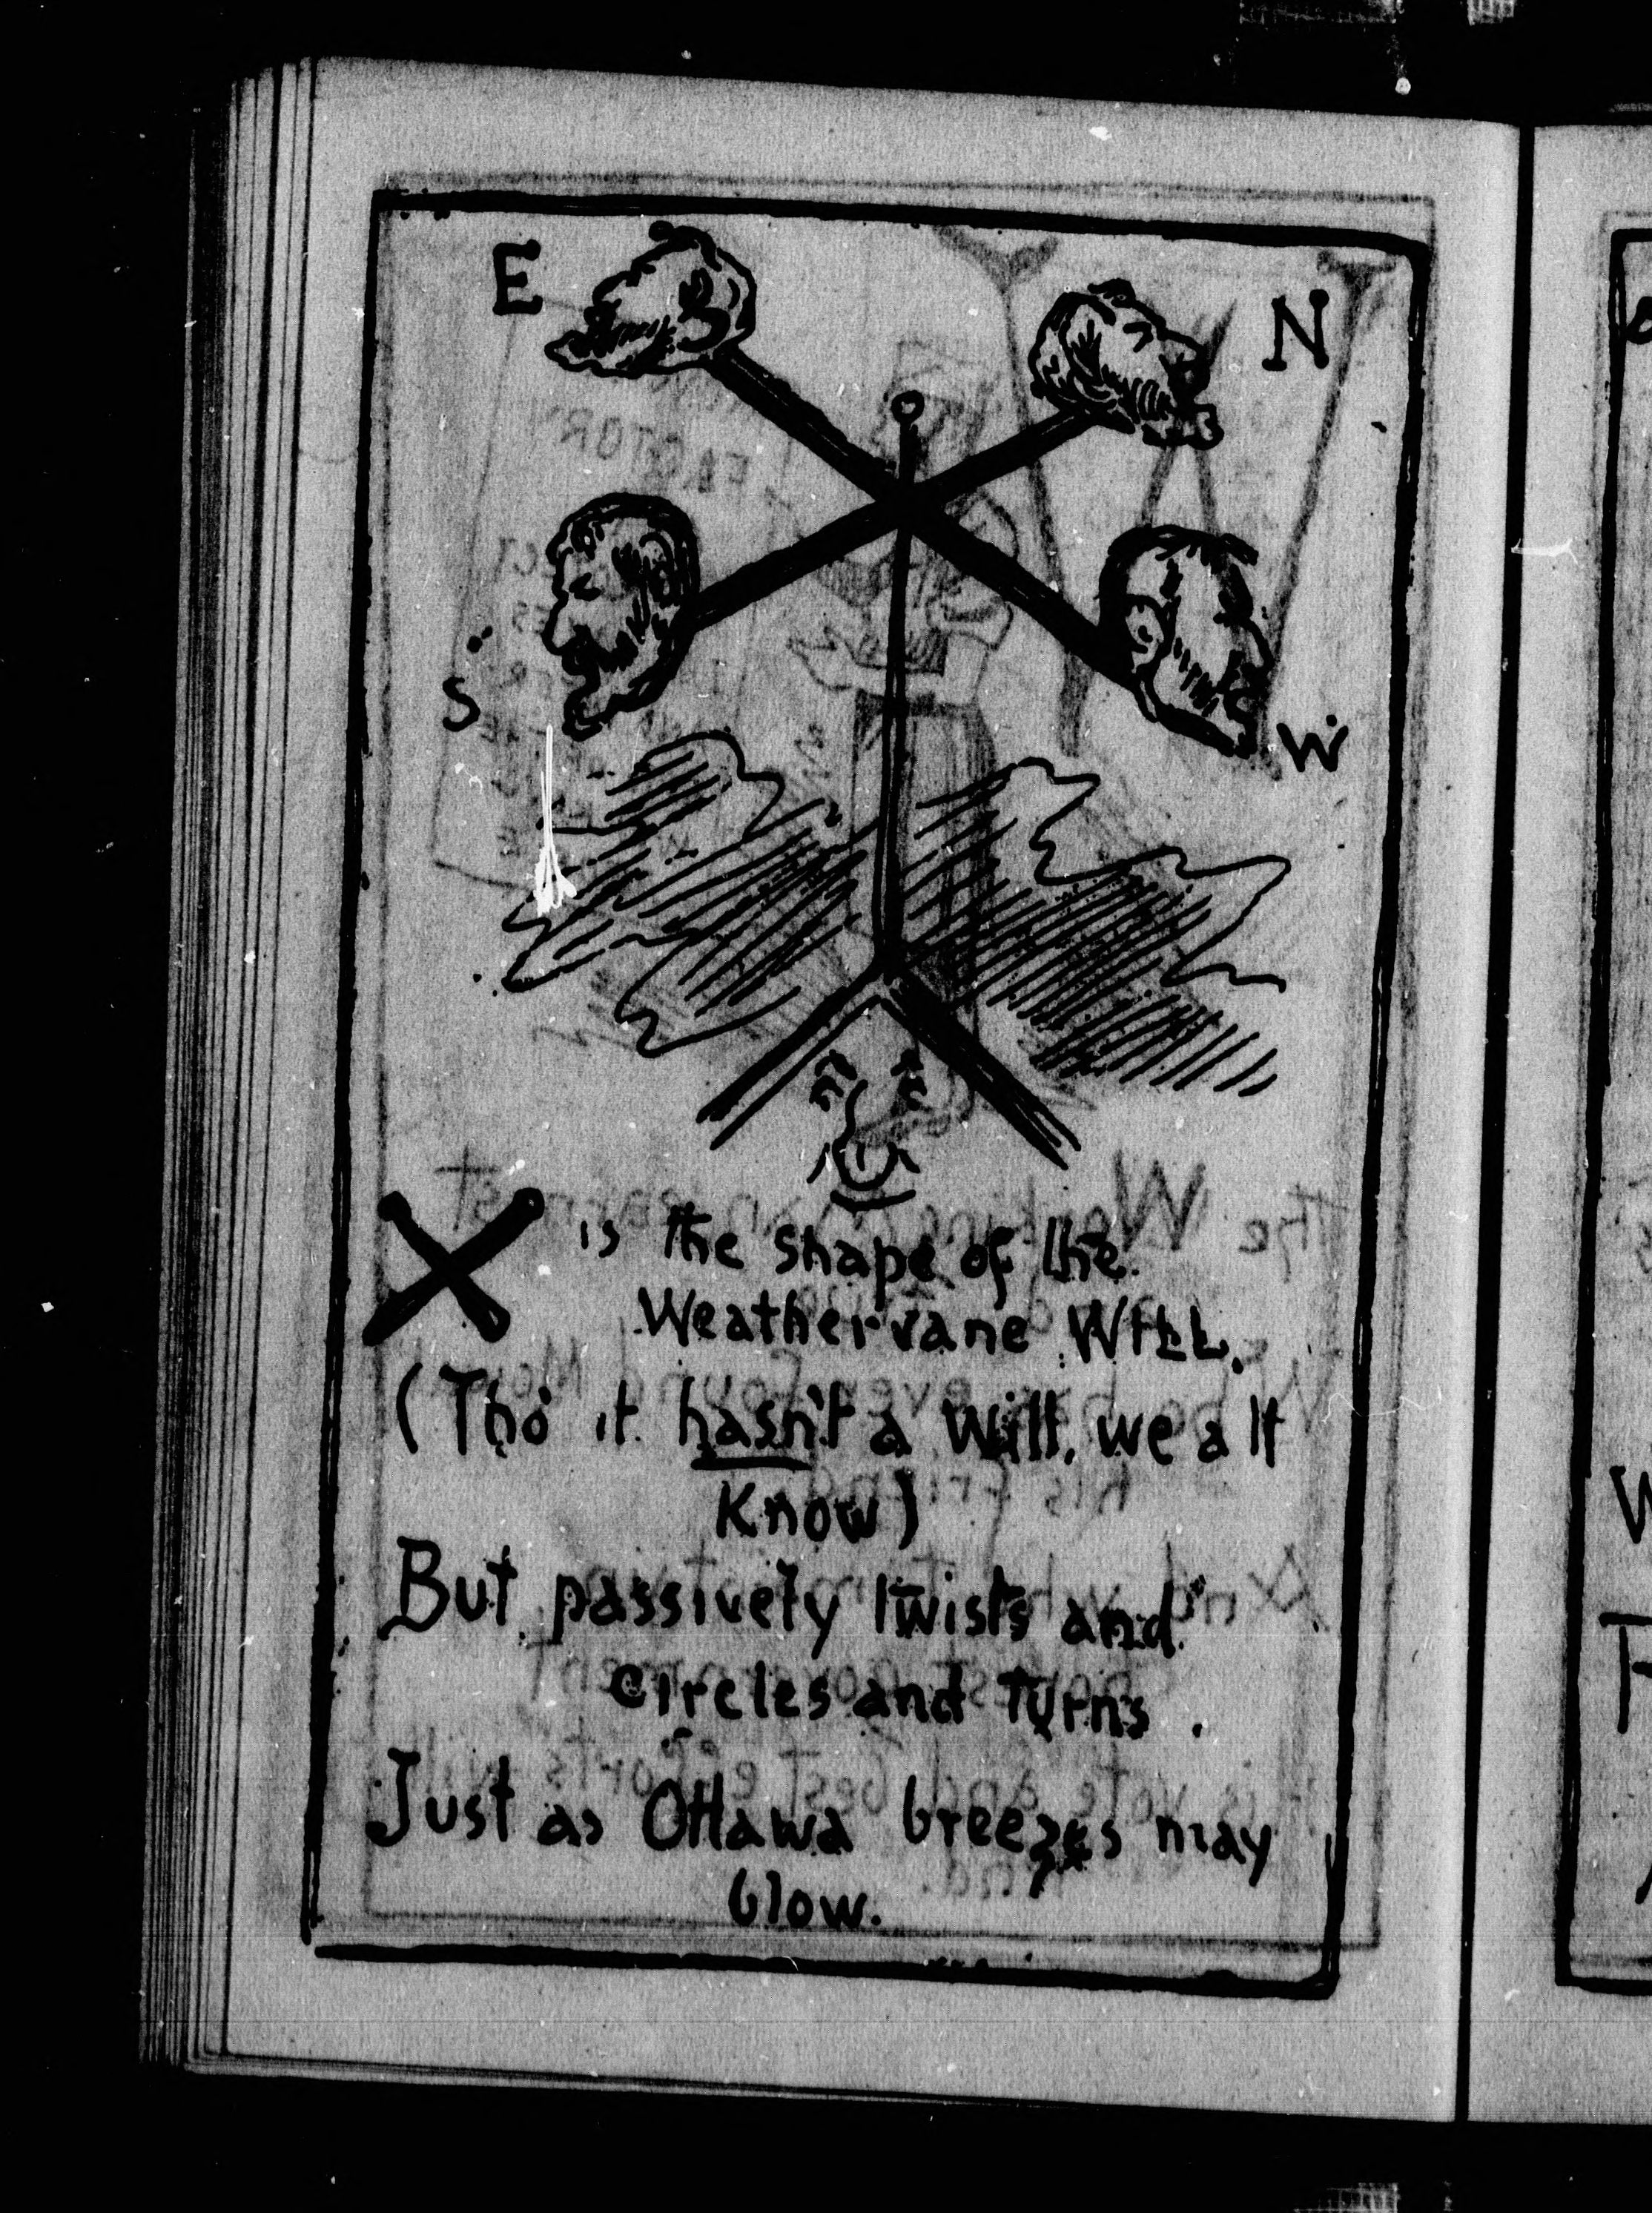 E
N
S
W
X is the shape of the
Weathervane WILL.
(Tho' it hasn't a Will, we all
Know)
But passively twists and
Circles and turns.
Just as Ottawa breezes may
blow.